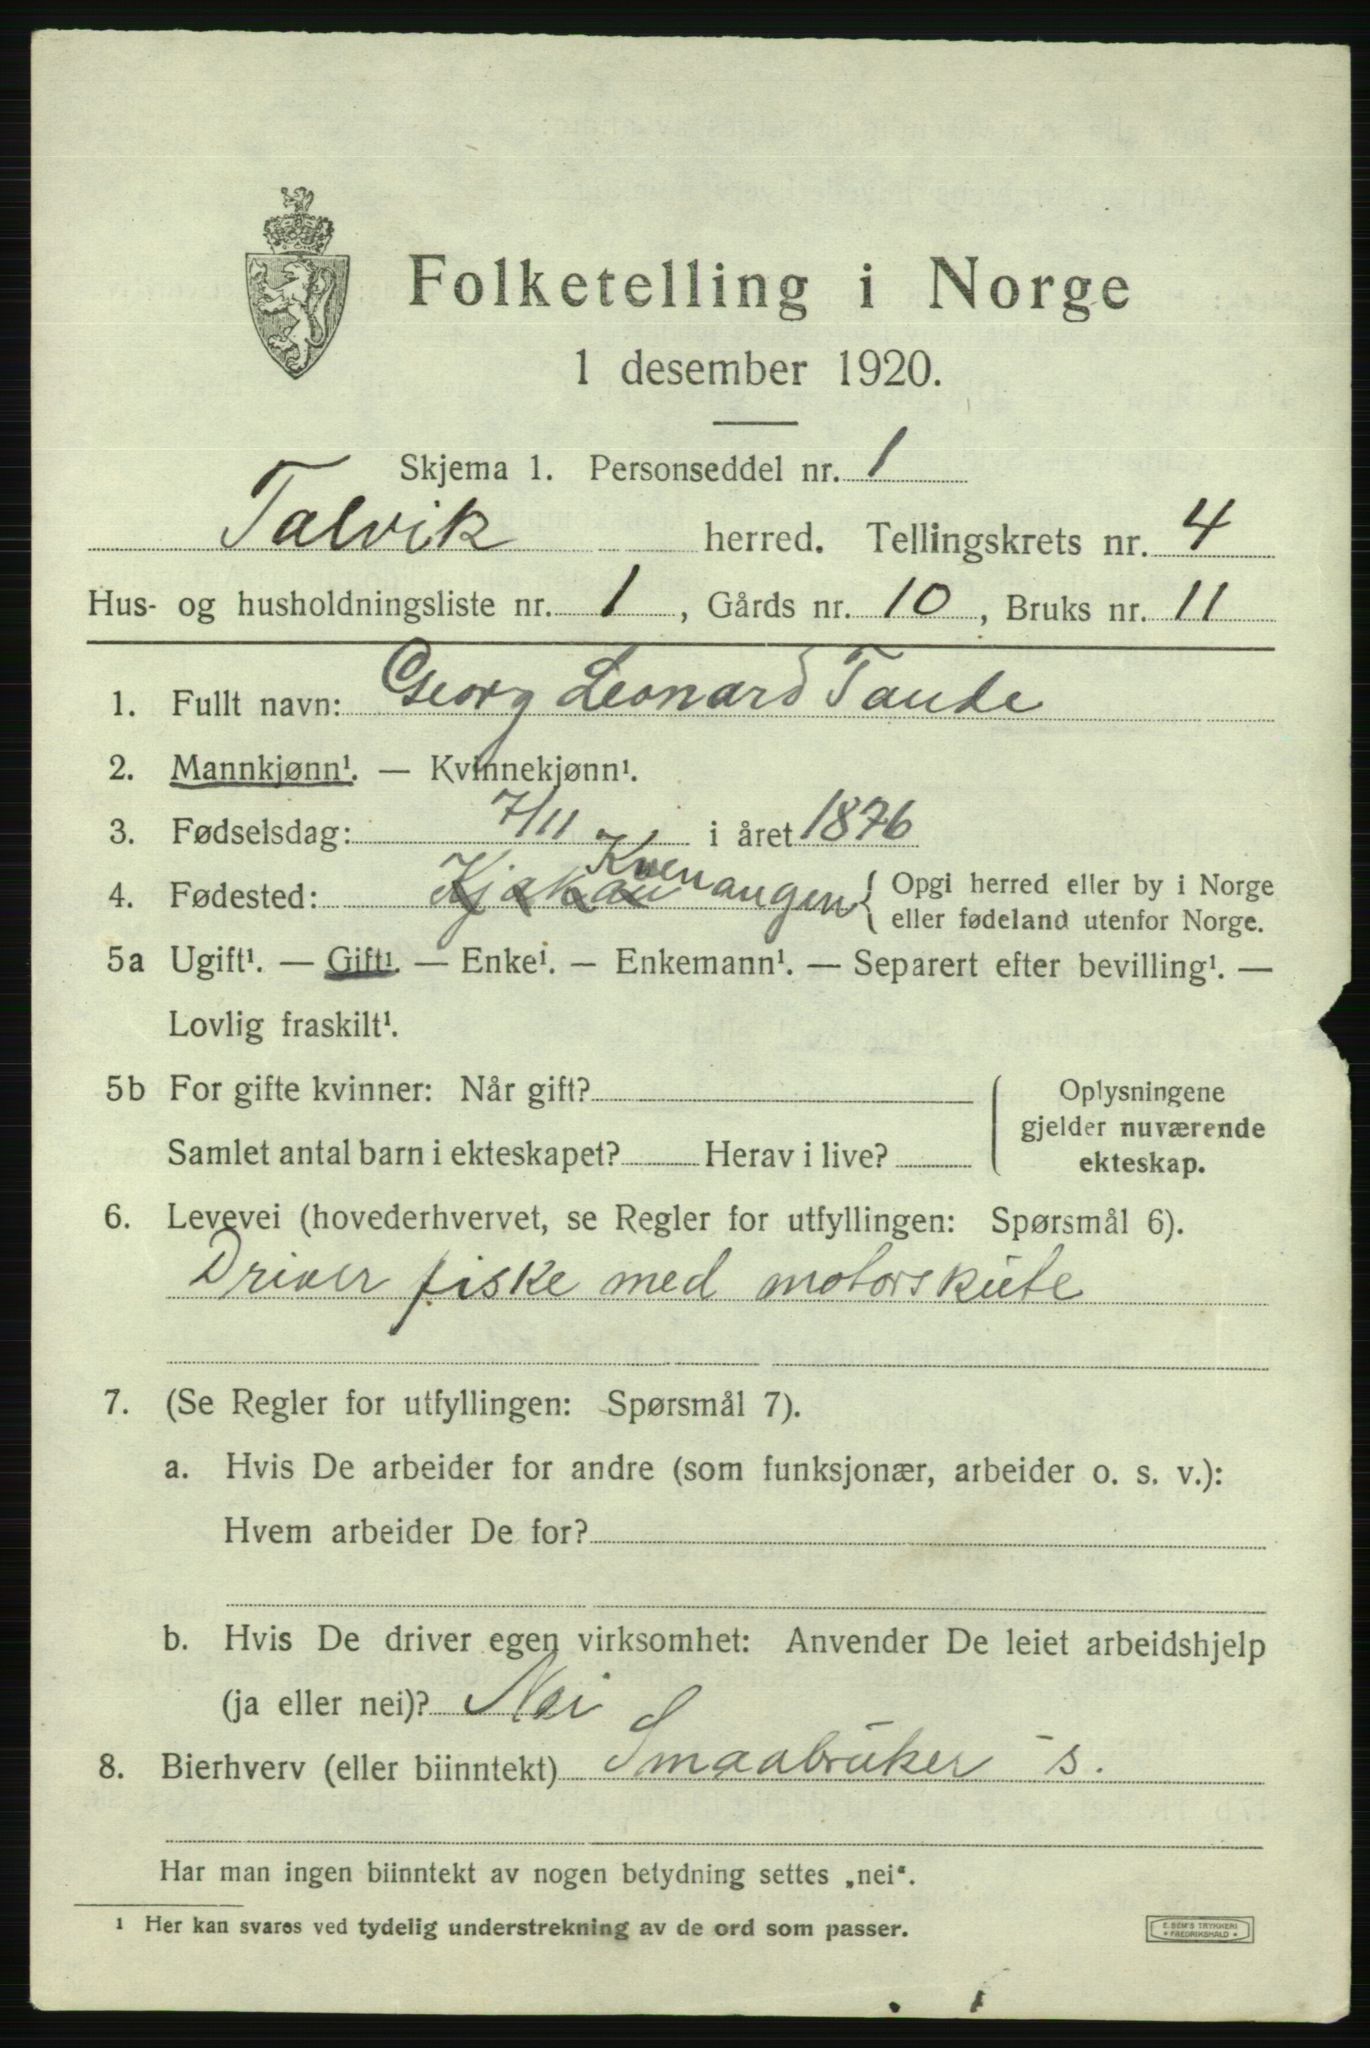 Folketelling i Norge
1 desember 1920.
Skjema 1. Personseddel nr. 1
Talvik herred. Tellingskrets nr. 4
Hus- og husholdningsliste nr. 1, Gårds nr. 10, Bruks nr. 11
1. Fullt navn: Georg Leonard Tande
2. Mannkjønn¹. — Kvinnekjønn¹.
3. Fødselsdag: 7/11 i året 1876
4. Fødested: Kvenangen { Opgi herred eller by i Norge
eller fødeland utenfor Norge.
5a Ugift¹. — Gift¹. — Enke¹. — Enkemann¹. — Separert efter bevilling¹. —
Lovlig fraskilt¹.
5b For gifte kvinner: Når gift?
Samlet antal barn i ekteskapet? Herav i live?
Oplysningene
gjelder nuværende
ekteskap.
6. Levevei (hovederhvervet, se Regler for utfyllingen: Spørsmål 6).
Driver fiske med motorskúte
7. (Se Regler for utfyllingen: Spørsmål 7).
a. Hvis De arbeider for andre (som funksjonær, arbeider o. s. v.):
Hvem arbeider De for?
b. Hvis De driver egen virksomhet: Anvender De leiet arbeidshjelp
(ja eller nei)? Nei
8. Bierhverv (eller biinntekt) Smaabrúker s.
Har man ingen biinntekt av nogen betydning settes „nei“.
¹ Her kan svares ved tydelig understrekning av de ord som passer.
E. SEM'S TRYKKERI
* FREDRIKSHALD *